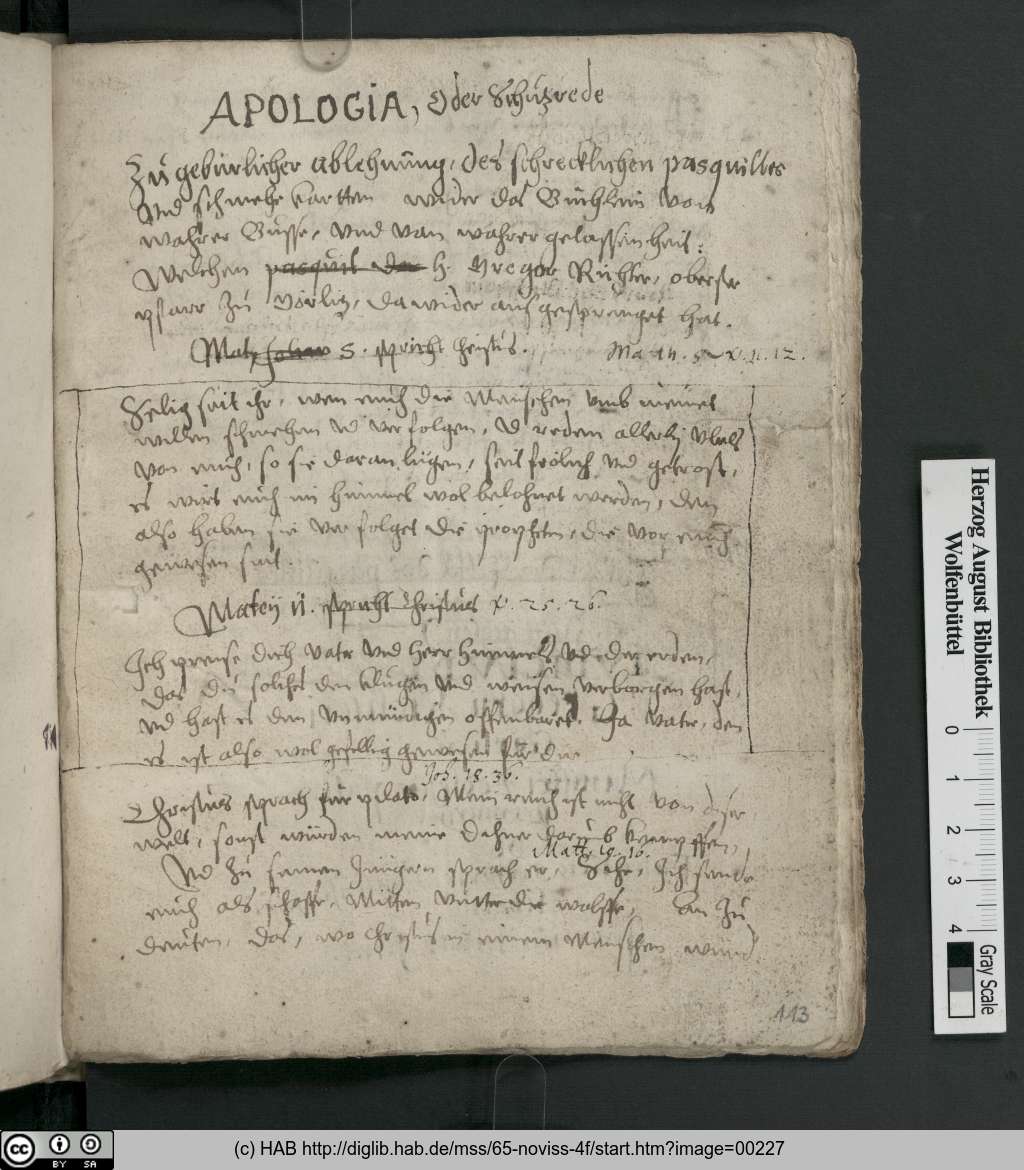 APOLOGIA, Oder Schutzrede
Zu gebürlicher ablehnung, des schrecklichen pasquilles
Vnd schmehe kartten wider das Büchlein von
wahrer Busse, vnd van wahrer gelassenheit:
Welchem pasquil h. Gregor Richter, oberster
pfarr zu Görlitz, dawider auß gesprenget hat.
Mat 5. spricht christus. Ma
Selig seit ihr, wen euch die Menschen vmb meinet
willen schmehen vd verfolgen, vd reden allerlej vbels
von euch, so sie daran lügen, seit frölich vnd getrost,
es wirt euch im himmel wol belohnet werden, den
also haben sie verfolget die propheten, die vor euch
gewesen sint.
Matej 11. spricht christus v. 25. 26.
Ich preise dich vater vnd herr himmels vd der erden,
das du solches den klugen vnd weisen verborgen hast,
vd hast es den vnmündigen offenbaret. Ja vater, den
es ist also wol gefellig gewesen für dir
Joh. 18. 36.
Christus sprach für pilato, Mein reich ist nicht von diser
welt, sonst würden meine diner darumb kempffen,
Matt. 10. 16.
Vd zu seinen Jüngern sprach er, Sehe, Ich sende
euch als schoffe, Mitten vnter die wolffe, an zu
deuten, das, wo christus in einem Menschen wird
113
Herzog August Bibliothek
Wolfenbüttel
0 1 2 3 4
Gray Scale
cc BY SA
(c) HAB http://diglib.hab.de/mss/65-noviss-4f/start.htm?image=00227